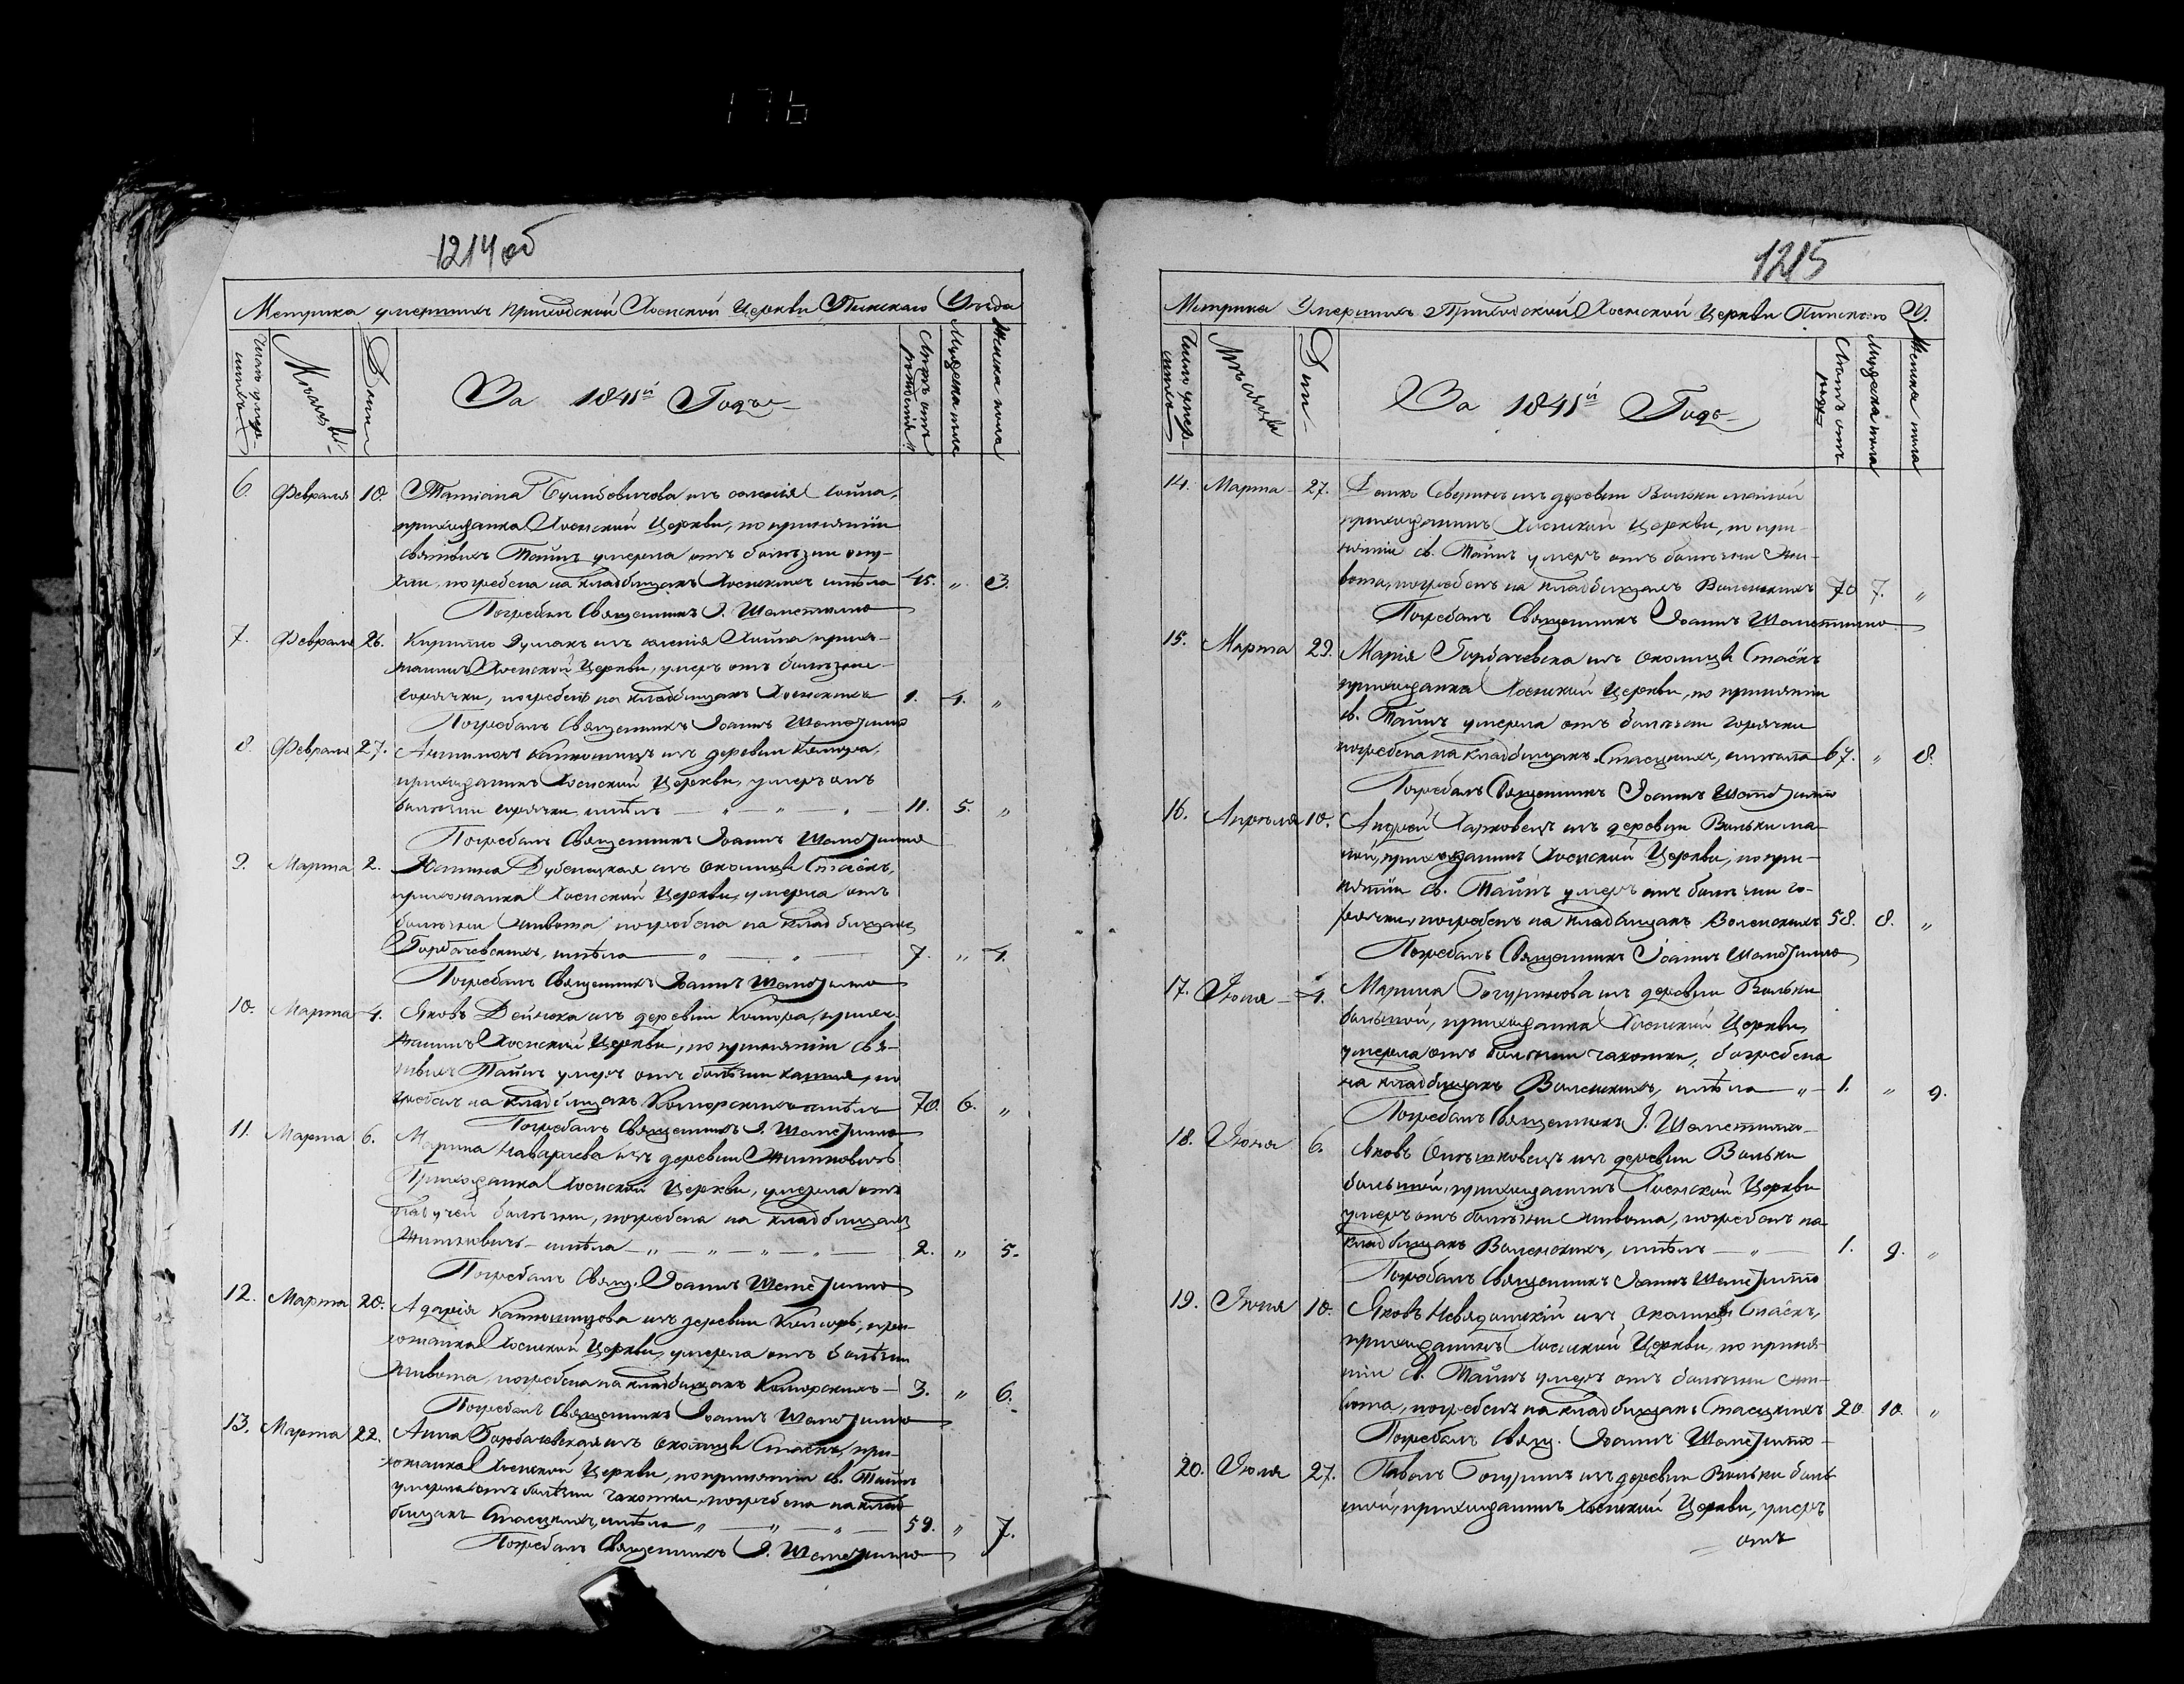 176
1214 об
Метрика умершихъ приходской Хоенской Церкви Пинскаго Уезда
Число умер-
Месяцы
Дни
За 1841й Годъ
Летъ отъ рождения
Мужеска пола
Женска пола
6. Февраля 10. Татиана изъ
прихожанка Хоенской Церкви, по принятіи
святыхъ Таинъ умерла отъ болезни опу-
хли, погребена на кладбищахъ Хоенскихъ имѣла 45. " 3.
Погребалъ Священникъ І. Шеметилло
7. Февраля 26. Кирилло изъ Хойна прихо-
жанинъ Хоенской Церкви, умеръ отъ болезни
горячки, погребенъ на кладбищахъ Хоенскихъ 1. 4. "
Погребалъ Священникъ Іоаннъ Шеметилло
8. Февраля 27. изъ деревни Комора,
прихожанинъ Хоенской Церкви, умеръ отъ
болезни горячки имѣлъ — " — " — " — 11. 5. "
Погребалъ Священникъ Іоаннъ Шеметилло
9. Марта 2. Юстина Дубеницкая изъ околицы Стаёкъ,
прихожанка Хоенской Церкви, умерла отъ
болезни живота погребена на кладбищахъ
Горбачевскихъ, имѣла — " — " — 7. " 4.
Погребалъ Священникъ Іоаннъ Шеметилло
10. Марта 4. Яковъ Дейнека изъ деревни Комора, прихо-
жанинъ Хоенской Церкви, по принятіи свя-
тыхъ Таинъ умеръ отъ болѣзни кашля, по
гребенъ на кладбищахъ Коморскихъ имѣлъ 70. 6. "
Погребалъ Священникъ І. Шеметилло
11. Марта 6. Марина изъ деревни Житновичъ
Прихожанка Хоенской Церкви, умерла отъ
падучей болезни, погребена на кладбищахъ
Житновичъ — имѣла — " — " — " — " — 2. " 5.
Погребалъ Свящ. Іоаннъ Шеметилло
12. Марта 20. Адарія изъ деревни Коморъ, при-
хожанка Хоенской Церкви, умерла отъ болѣзни
живота, погребена на кладбищахъ Коморскихъ — 3. " 6.
Погребалъ Священникъ Іоаннъ Шеметилло
13. Марта 22. Анна Горбачевская изъ околицы Стаекъ, при-
хожанка Хоенской Церкви, по принятіи св. Таинъ
умерла отъ болезни чахотки, погребена на клад-
бищахъ Стаецкихъ, имѣла " — " — " — 59. " 7.
Погребалъ Священникъ І. Шеметилло
1215
Метрика Умершихъ Приходской Хоенской Церкви Пинскаго У.
Число умер-
Месяцы
Дни
За 1841й Годъ
Летъ отъ рожд
Мужеска пола
Женска пола
14. Марта 27. изъ деревни Вольки малой
прихожанинъ Хоенской Церкви, по при-
нятіи св. Таинъ умеръ отъ болезни жи-
вота, погребенъ на кладбищахъ Воленскихъ 70 7. "
Погребалъ Священникъ Іоаннъ Шеметилло
15. Марта 29. Марія Горбачевска изъ околицы Стаёкъ
прихожанка Хоенской Церкви, по принятіи
св. Таинъ умерла отъ болезни горячки
погребена на кладбищахъ Стаецкихъ, имѣла 67. " 8.
Погребалъ Священникъ Іоаннъ Шеметилло
16. Апреля 10. Андрей Харковецъ изъ деревни Вольки ма-
лой, прихожанинъ Хоенской Церкви, по при-
нятіи св. Таинъ умеръ отъ болезни го-
рячки, погребенъ на кладбищахъ Воленскихъ 58. 8. "
Погребалъ Священникъ Іоаннъ Шеметилло
17. 4. Марина изъ деревни Вольки
большой, прихожанка Хоенской Церкви,
умерла отъ болезни чахотки, погребена
на кладбищахъ Воленскихъ, имѣла " — 1. " 9.
Погребалъ Священникъ І. Шеметилло
18. 6. Яковъ изъ деревни Вольки
большой, прихожанинъ Хоенской Церкви
умеръ отъ болѣзни живота, погребенъ на
кладбищахъ Воленскихъ, имѣлъ — " — 1. 9. "
Погребалъ Священникъ Іоаннъ Шеметилло
19. 10. Яковъ изъ околицы Стаёкъ,
прихожанинъ Хоенской Церкви, по приня-
тіи св. Таинъ умеръ отъ болезни жи-
вота, погребенъ на кладбищахъ Стаецкихъ 20 10. "
Погребалъ Свящ. Іоаннъ Шеметилло
20. 27. Павелъ изъ деревни Вольки боль-
шой, прихожанинъ Хоенской Церкви, умеръ
отъ